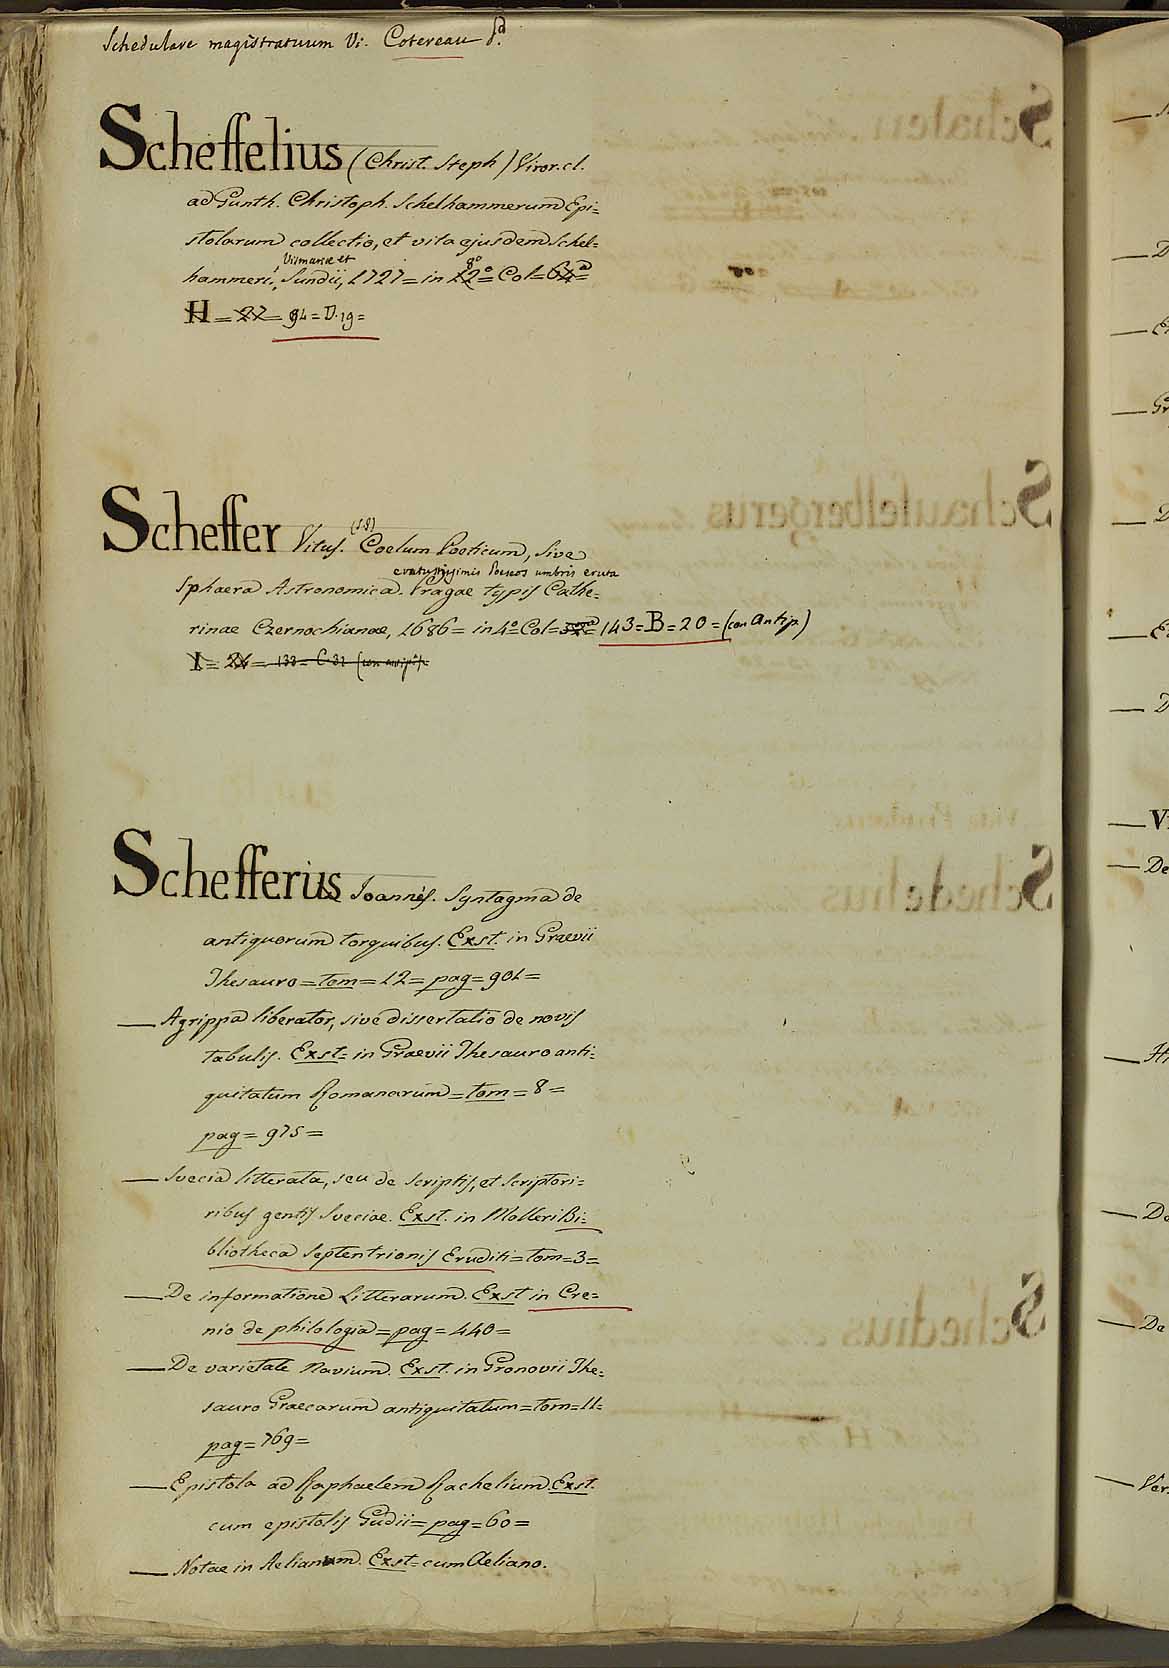 Schedulare magistratuum Vi. Cotereau
Scheffelius (Christ. Steph) Viror. cl.
ad Gunth. Christoph. Schelhammerum Epi=
stolarum collectio, et vita ejusdem Schel=
Vismariae et 8°
hammeri, Sundii, 1727= in 12°= Col= 64=
H = 27 = 94= D. 19=
Scheffer Vitus. (S.J) Coelum Poeticum, sive
evetustissimis Poeseos umbris eruta
Sphaera Astronomica. Pragae typis Cathe=
rinae Czernochianae, 1686= in 4°= Col= 143= B= 20= (con antip.)
I= 26= 133= C 31 (con antip.)
Schefferus Ioannes. Syntagma de
antiquorum torquibus. Exst. in Graevii
Thesauro= tom= 12= pag= 901=
— Agrippa liberator, sive dissertatio de novis
tabulis. Exst= in Graevii Thesauro anti=
quitatum Romanarum= tom= 8=
pag= 975=
— Svecia litterata, seu de scriptis, et scriptori=
ribus gentis Sveciae. Exst. in Molleri Bi=
bliotheca Septentrionis Eruditi= tom= 3=
— De informatione Litterarum. Exst in Cre=
nio de philologia= pag= 440=
— De varietate Navium. Exst. in Gronovii The=
sauro Graecarum antiquitatum= tom= 11=
pag= 769=
— Epistola ad Raphaelem Rachelium. Exst.
cum epistolis Gudii= pag= 60=
— Notae in Aelianum. Exst= cum Aeliano.